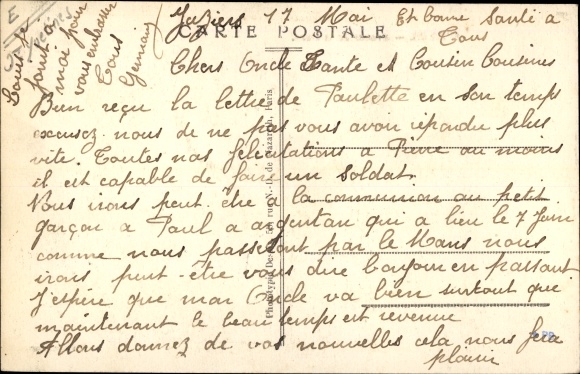 Juziers 17 Mai Et bonne Santé a
Tous
CARTE POSTALE
Chers Oncle Tante et Cousin Cousines
Bien reçu la lettre de Paulette en son temps
excusez-nous de ne pas vous avoir répondu plus
vite. Toutes nos félicitations a Pierre au moins
il est capable de faire un Soldat.
Nous irons peut-être a la communion au petit
garçon a Paul a argentan qui a lieu le 7 Juin
comme nous passerons par le Mans nous
irons peut-être vous dire bonjour en passant
J'espère que mon Oncle va bien surtout que
maintenant le beau temps est revenu
Allons donnez de vos nouvelles cela nous fera
plaisir
pour
moi pour
vous embrasser
Tous
Germain